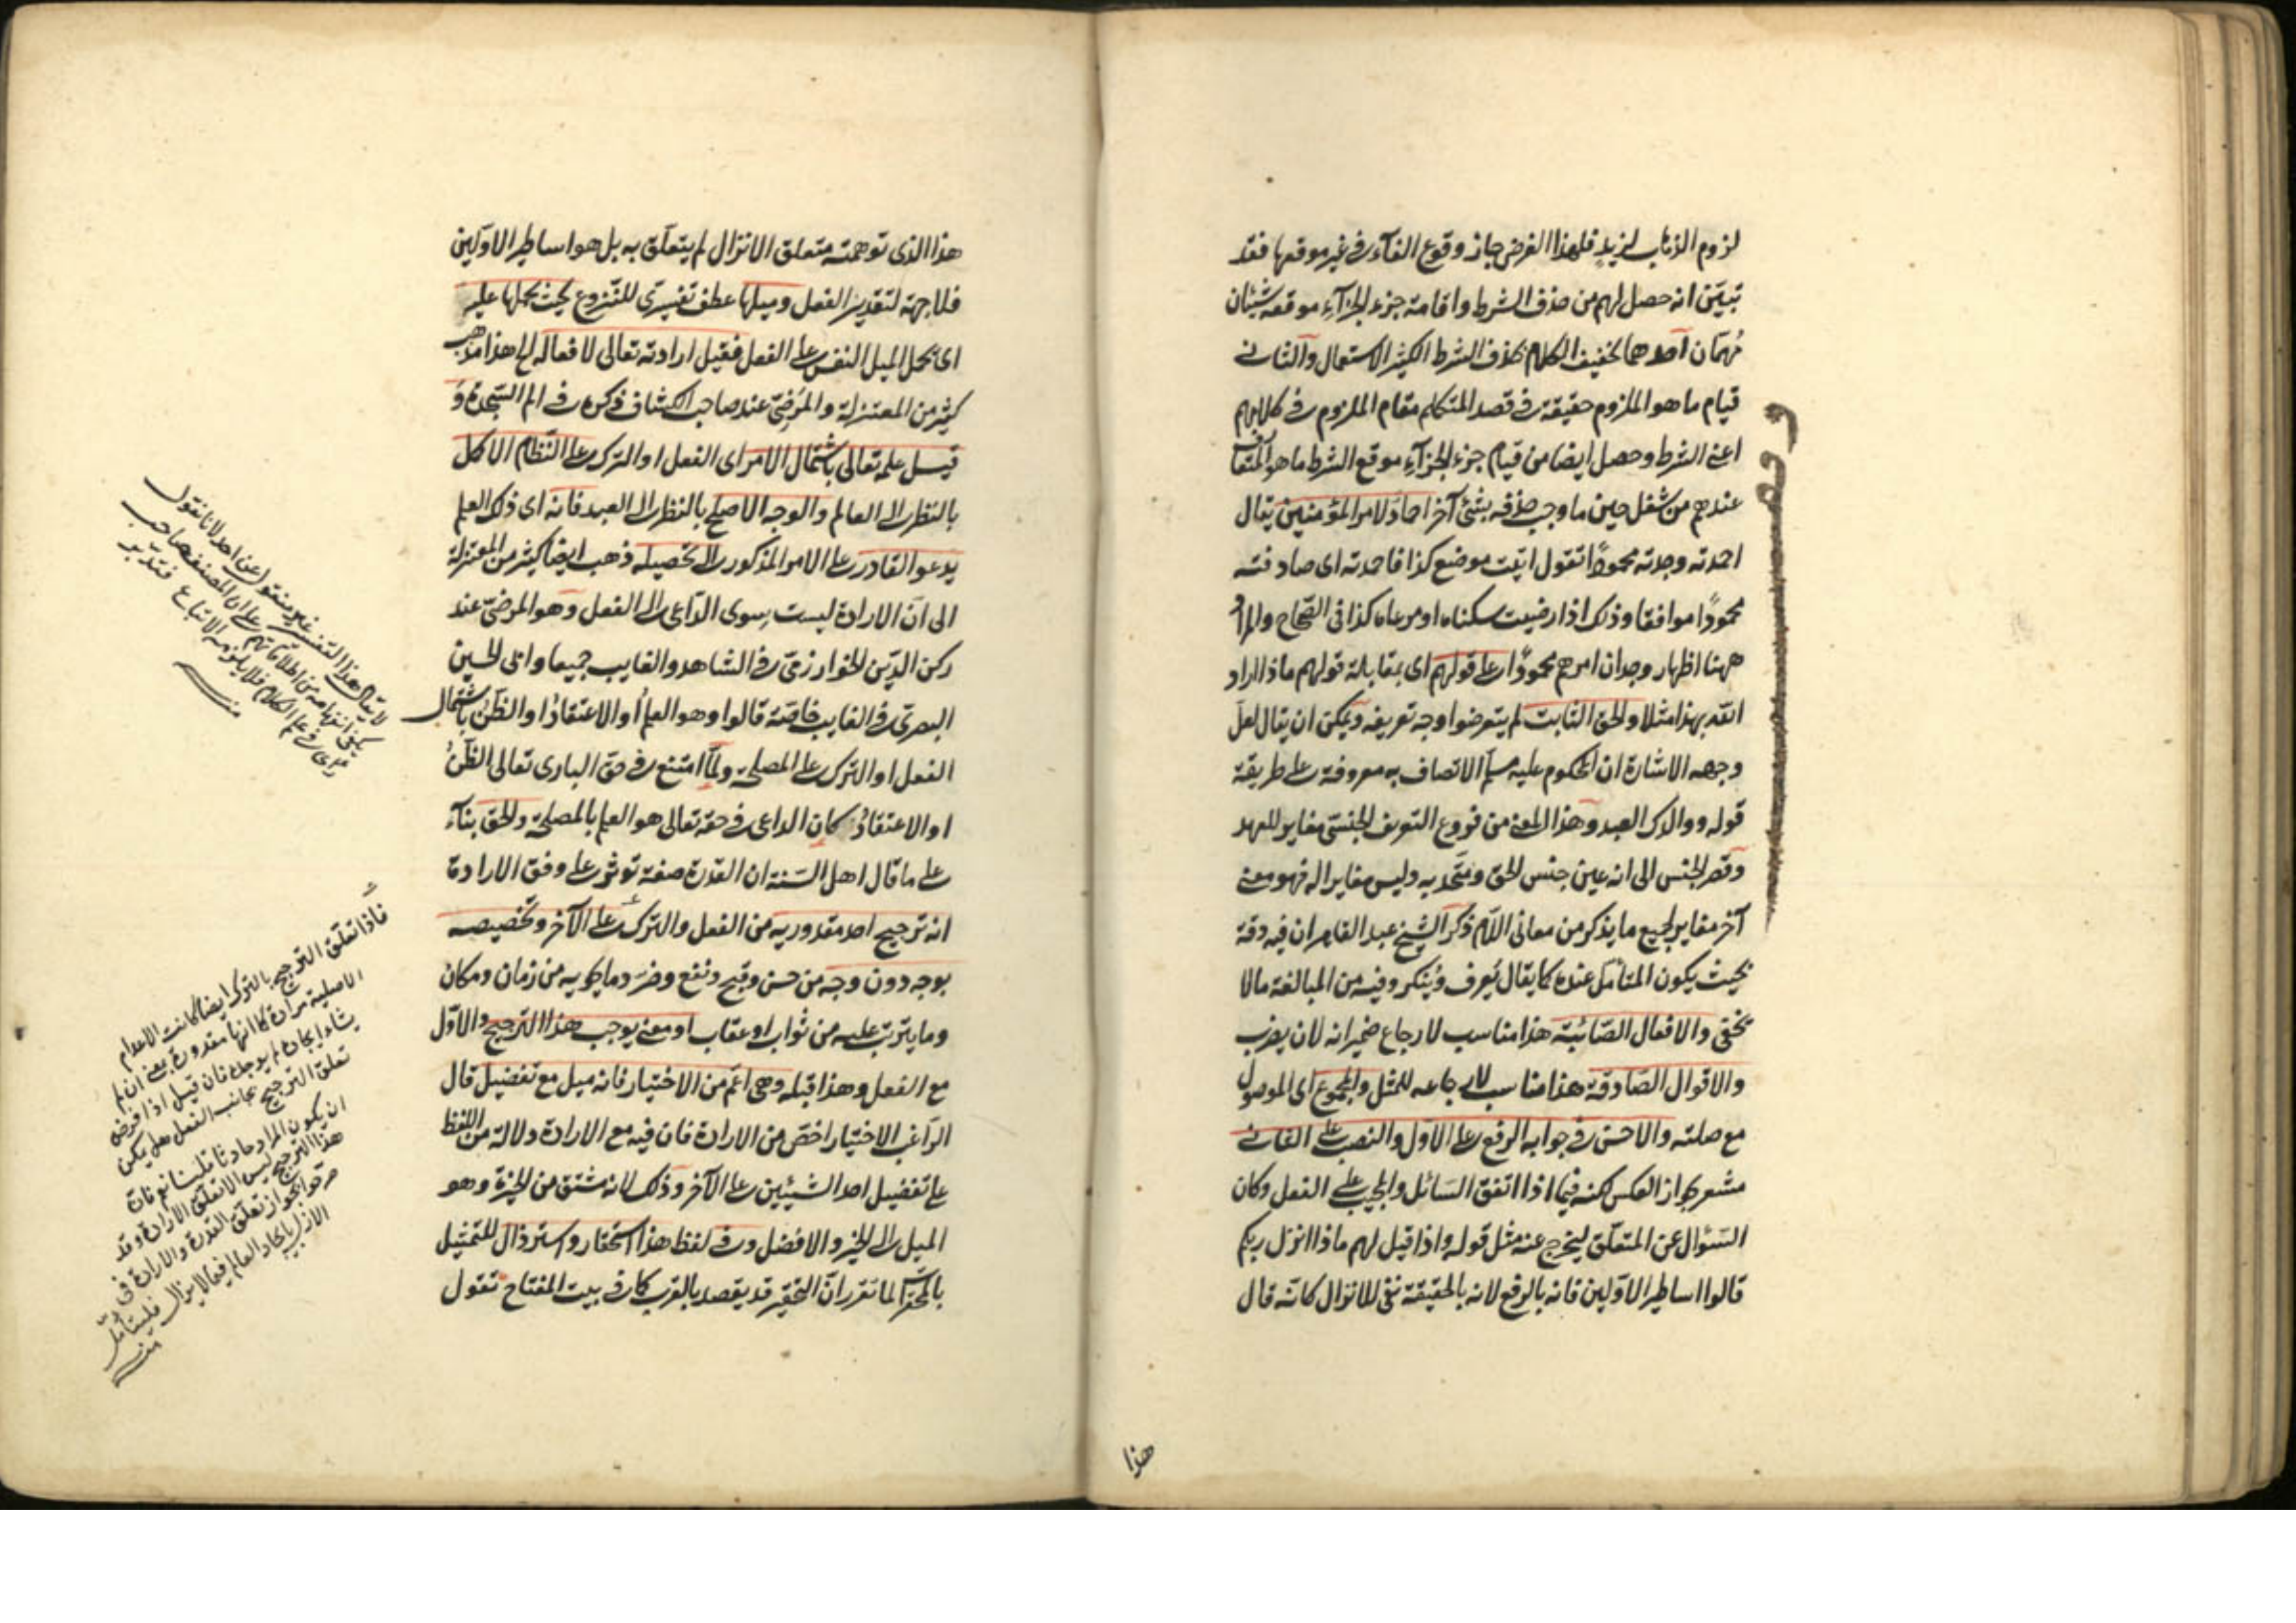 لزوم الذهاب لزيد فلهذا الغرض جاز وقوع الفآء في غير موقعها فقد
تبيّن انه حصل لهم من حذف الشرط واقامة جزء الجزآء موقعه شيئان
مُهمّان احدهما تخفيف الكلام بحذف الشرط الكثير الاستعمال والثاني
قيام ما هو الملزوم حقيقة في قصد المتكلم مقام الملزوم في كلامهم
اعني الشرط وحصل ايضا من قيام جزء الجزآء موقع الشرط ما هو المتعارف
عندهم من شغل حين ما وجب حذفه بشئ آخر احماد لامر المؤمنين يقال
احمدته وجدته محمودًا تقول اتيت موضع كذا فاحمدته اى صادفته
محمودًا موافقا وذلك اذا رضيت سكناه او مرعاه كذا في الصّحاح والمراد
ههنا اظهار وجدان امرهم محمودًا على قولهم اى بمقابلة قولهم ماذا اراد
الله بهذا مثلا والحق الثابت لم يتعرضوا وجه تعريفه ويمكن ان يقال لعلّ
وجهه الاشارة ان المحكوم عليه مسلّم الاتصاف به معروفة على طريقة
قوله ووالدك العبد وهذا المعنى من فروع التعريف الجنسىّ مغاير للعهد
وقصر الجنس الى انه عين جنس الحق ومتّحد به وليس مغايرا له فهو معنى
آخر مغاير لجميع ما يذكر من معانى اللّام ذكر الشيخ عبد القاهر ان فيه دقة
بحيث يكون المتأمل عنده كما يقال يُعرف ويُنكر وفيه من المبالغة مالا
يخفى والافعال الصّائبة هذا مناسب لارجاع ضمير انه لان يضرب
والاقوال الصّادقة هذا مناسب لارجاعه للمثل والمجموع اى الموصول
مع صلته والاحسن في جوابه الرفع على الاول والنصب على الثاني
مشعر بجواز العكس لكنه فيما اذا اتفق السّائل والمجيب على الفعل وكان
السّئوال عن المتعلّق ليخرج عنه مثل قوله واذا قيل لهم ماذا انزل ربكم
قالوا اساطير الاوّلين فانه بالرفع لانه بالحقيقة نفى للانزال كانّه قال
هذا
هذا الذى توهمته متعلق الانزال لم يتعلّق به بل هو اساطير الاوّلين
فلا جهة لتقدير الفعل وميلها عطف تفسيرىّ للنّزوع بحيث يحملها عليه
اى يحمل الميل النفس على الفعل فقيل ارادته تعالى لافعاله الخ هذا مذهب
كثير من المعتزلة والمَرْضىّ عند صاحب الكشاف ذكره في الم السّجدة و
قيل علمه تعالى باشتمال الامر اى الفعل او الترك على النّظام الاكمل
بالنّظر الى العالم والوجه الاصلح بالنظر الى العبد فانه اى ذلك العلم
يدعو القادر على الامر المذكور الى تحصيله ذهب ايضا كثير من المعتزلة
الى انّ الارادة ليست سوى الدّاعى الى الفعل وهو المرضىّ عند
ركن الدّين الخوارزمىّ في الشاهد والغايب جميعا وابى الحسين
البصرىّ في الغايب خاصّة قالوا وهو العلمُ او الاعتقادُ او الظنُّ باشتمال
الفعل او الترك على المصلحة ولمّا امتنع في حق البارى تعالى الظنُّ
او الاعتقادُ كان الداعى في حقه تعالى هو العلم بالمصلحة والحق بنآء
على ما قال اهل السّنة ان القدرة صفة توثر على وفق الارادة
انه ترجيح احد مقدوريه من الفعل والترك على الآخر وتخصيصه
بوجه دون وجه من حسن وقبح ونفع وضر وما يحويه من زمان ومكان
وما يترتب عليه من ثواب او عقاب او معنى يوجب هذا الترجيح والاوّل
مع الفعل وهذا قبله وهى اعمّ من الاختيار فانه ميل مع تفضيل قال
الرّاغب الاختيار اخصّ من الارادة فان فيه مع الارادة دلالة من اللفظ
على تفضيل احد الشيئين على الآخر وذلك لانه مشتق من الخيرة وهو
الميل الى الخير والافضل وفى لفظ هذا استحقار واسترذال للتمثيل
بالمحقّر لما تقرر انّ التحقير قد يقصد بالقرب كما في بيت المفتاح تقول
لا يقال هذا التفسير غير منقول عن احد لانا نقول
يكفى انفهامه من اطلاقاتهم على ان المصنف صاحب
رأى في علم الكلام فلا يلزمه الاتباع فتدبّر
منه
فاذا تعلّق الترجيح بالترك ايضا كانت الاعدام
الاصلية مرادة كما انها مقدورة بمعنى ان لم
يشأ ايجاده لم يوجد فان قيل اذا فرض
تعلّق الترجيح بجانب الفعل هل يمكن
ان يكون المراد حادثا قلنا نعم فان
هذا الترجيح ليس الا تعلّق الارادة وقد
صرّحوا بجواز تعلّق القدرة والارادة في
الازل بايجاد العالم فيما لا يزال فليتأمّل
منه